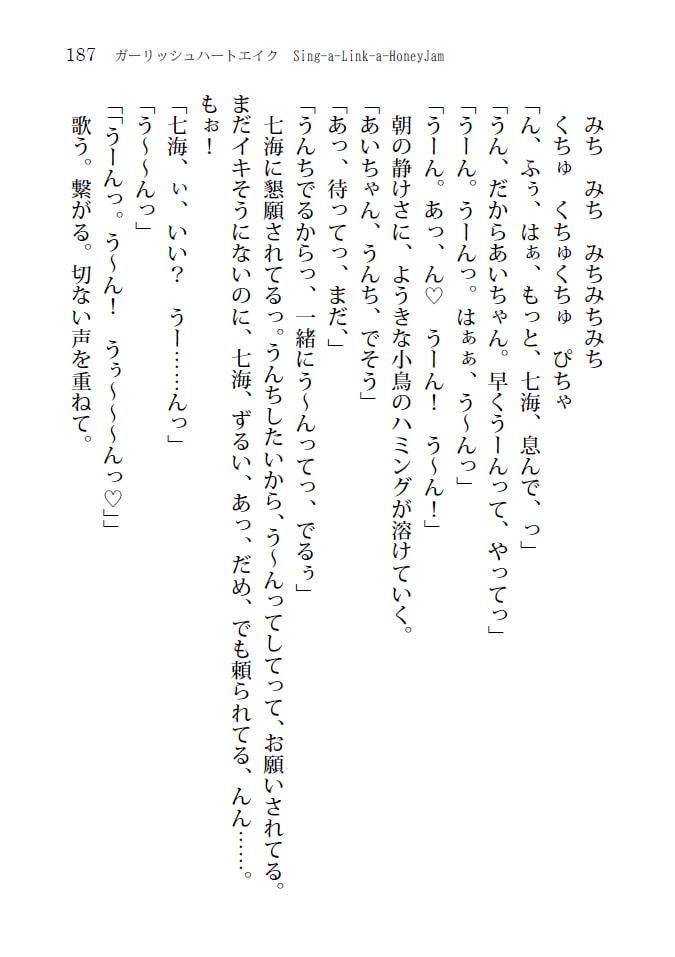 187 ガーリッシュハートエイク Sing-a-Link-a-HoneyJam
みち みち みちみちみち
くちゅ くちゅくちゅ ぴちゃ
「ん、ふぅ、はぁ、もっと、七海、息んで、っ」
「うん、だからあいちゃん。早くうーんって、やってっ」
「うーん。うーんっ。はぁぁ、う〜んっ」
「うーん。あっ、ん♡ うーん! う〜ん!」
朝の静けさに、ようきな小鳥のハミングが溶けていく。
「あいちゃん、うんち、でそう」
「あっ、待ってっ、まだ、」
「うんちでるからっ、一緒にう〜んってっ、でるぅ」
七海に懇願されてるっ。うんちしたいから、う〜んってしてって、お願いされてる。
まだイキそうにないのに、七海、ずるい、あっ、だめ、でも頼られてる、んん……。
もぉ!
「七海、ぃ、いい? うー……んっ」
「う〜〜んっ」
「「うーんっ。う〜ん! うぅ〜〜〜んっ♡」」
歌う。繋がる。切ない声を重ねて。